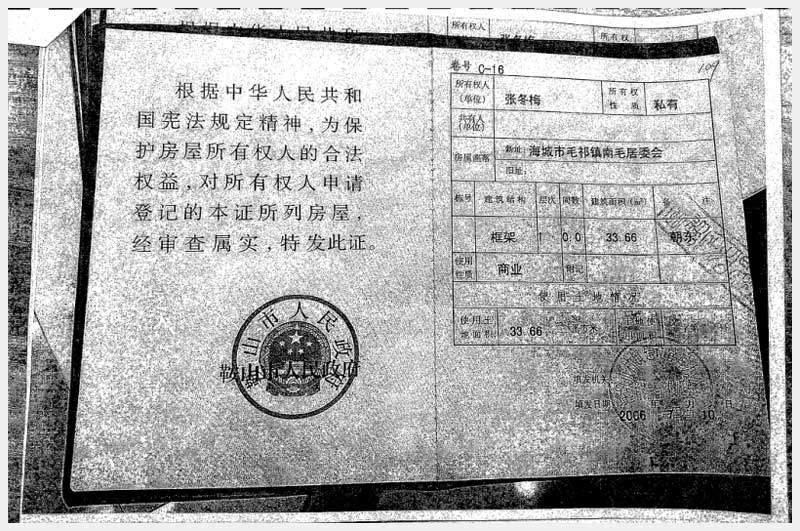 所有权人
张冬梅
所有权
根据中华人民共和
国宪法规定精神，为保
护房屋所有权人的合法
权益，对所有权人申请
登记的本证所列房屋，
经审查属实，特发此证。
鞍山市人民政府
鞍山市人民政府
卷号 C-16
109
所有权人（单位） 张冬梅 所有权性质 私有
共有人（单位）
房屋座落 新址: 海城市毛祁镇南毛居委会
旧址:
栋号 建筑结构 层次 间数 建筑面积(m²) 备注
框架 1 0.0 33.66 朝东
使用性质 商业 附记
使用土地情况
使用土地面积 33.66 平方米
填发机关
填发日期 2006 年 7 月 10 日